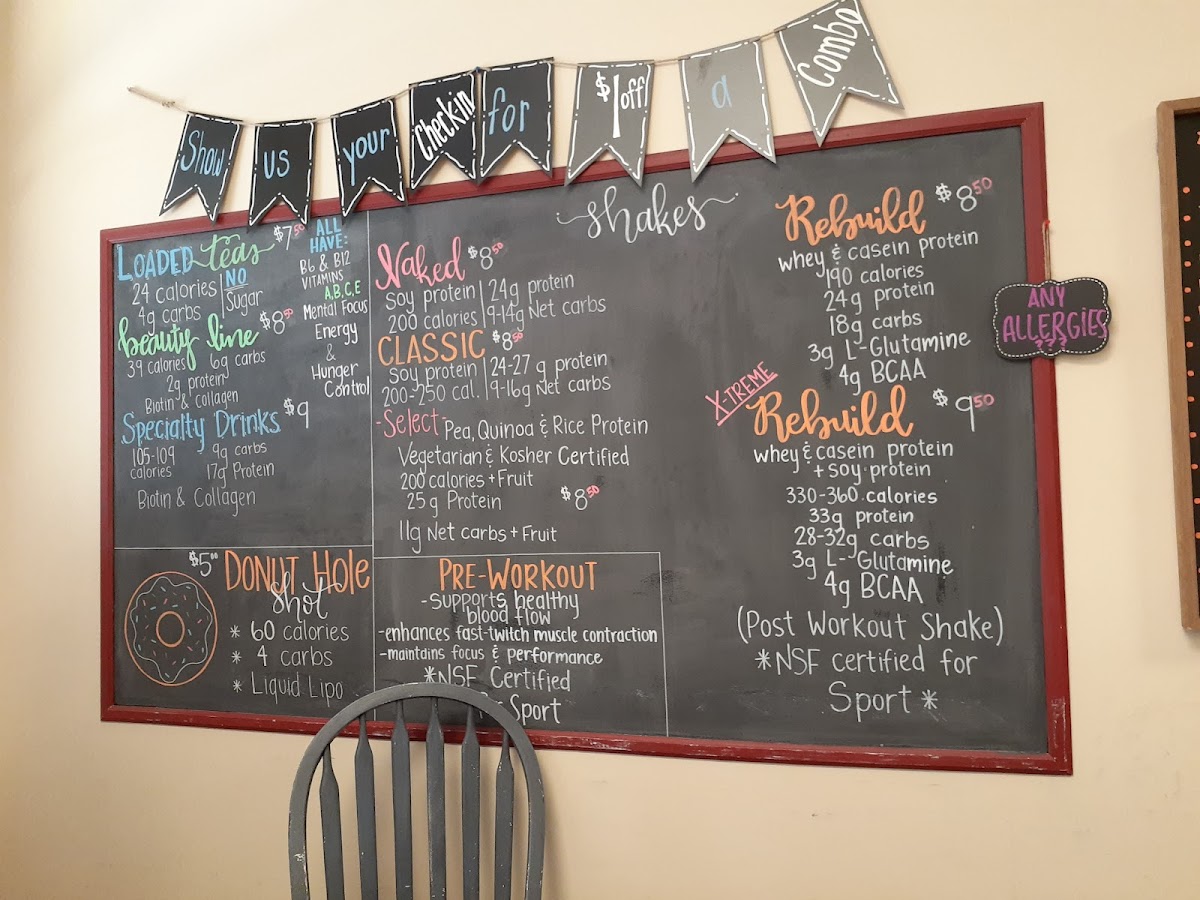 Show us your Checkin for $1 off a Combo
LOADED teas $7.50
24 calories
4g carbs
NO
Sugar
beauty line $8.50
39 calories 6g carbs
2g protein
Biotin & collagen
Specialty Drinks $9
105-109 9g carbs
calories 17g Protein
Biotin & Collagen
ALL
HAVE:
B6 & B12
VITAMINS
A,B,C,E
Mental Focus
Energy
&
Hunger
Control
$5.00 DONUT HOLE
shot
* 60 calories
* 4 carbs
* Liquid Lipo
shakes
Naked $8.50
soy protein 24g protein
200 calories 9-14g Net carbs
CLASSIC $8.50
soy protein 24-27 g protein
200-250 cal. 9-16g Net carbs
-Select Pea, Quinoa & Rice Protein
Vegetarian & Kosher Certified
200 calories + Fruit
25 g Protein $8.50
11g Net carbs + Fruit
PRE-WORKOUT
-supports healthy
blood flow
-enhances fast-twitch muscle contraction
-maintains focus & performance
*NSF Certified
Sport
Rebuild $8.50
whey & casein protein
190 calories
24g protein
18g carbs
3g L-Glutamine
4g BCAA
X-TREME
Rebuild $9.50
whey & casein protein
+ soy protein
330-360 calories
33g protein
28-32g carbs
3g L-Glutamine
4g BCAA
(Post Workout Shake)
*NSF certified for
Sport*
ANY
ALLERGIES
???